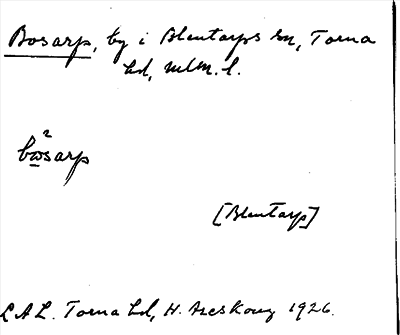 Bosarp, by i Blentarps sn, Torna
hd, Mlm. l.
2
bosarp
[Blentarp]
LAL. Torna hd, H. Areskoug 1926.